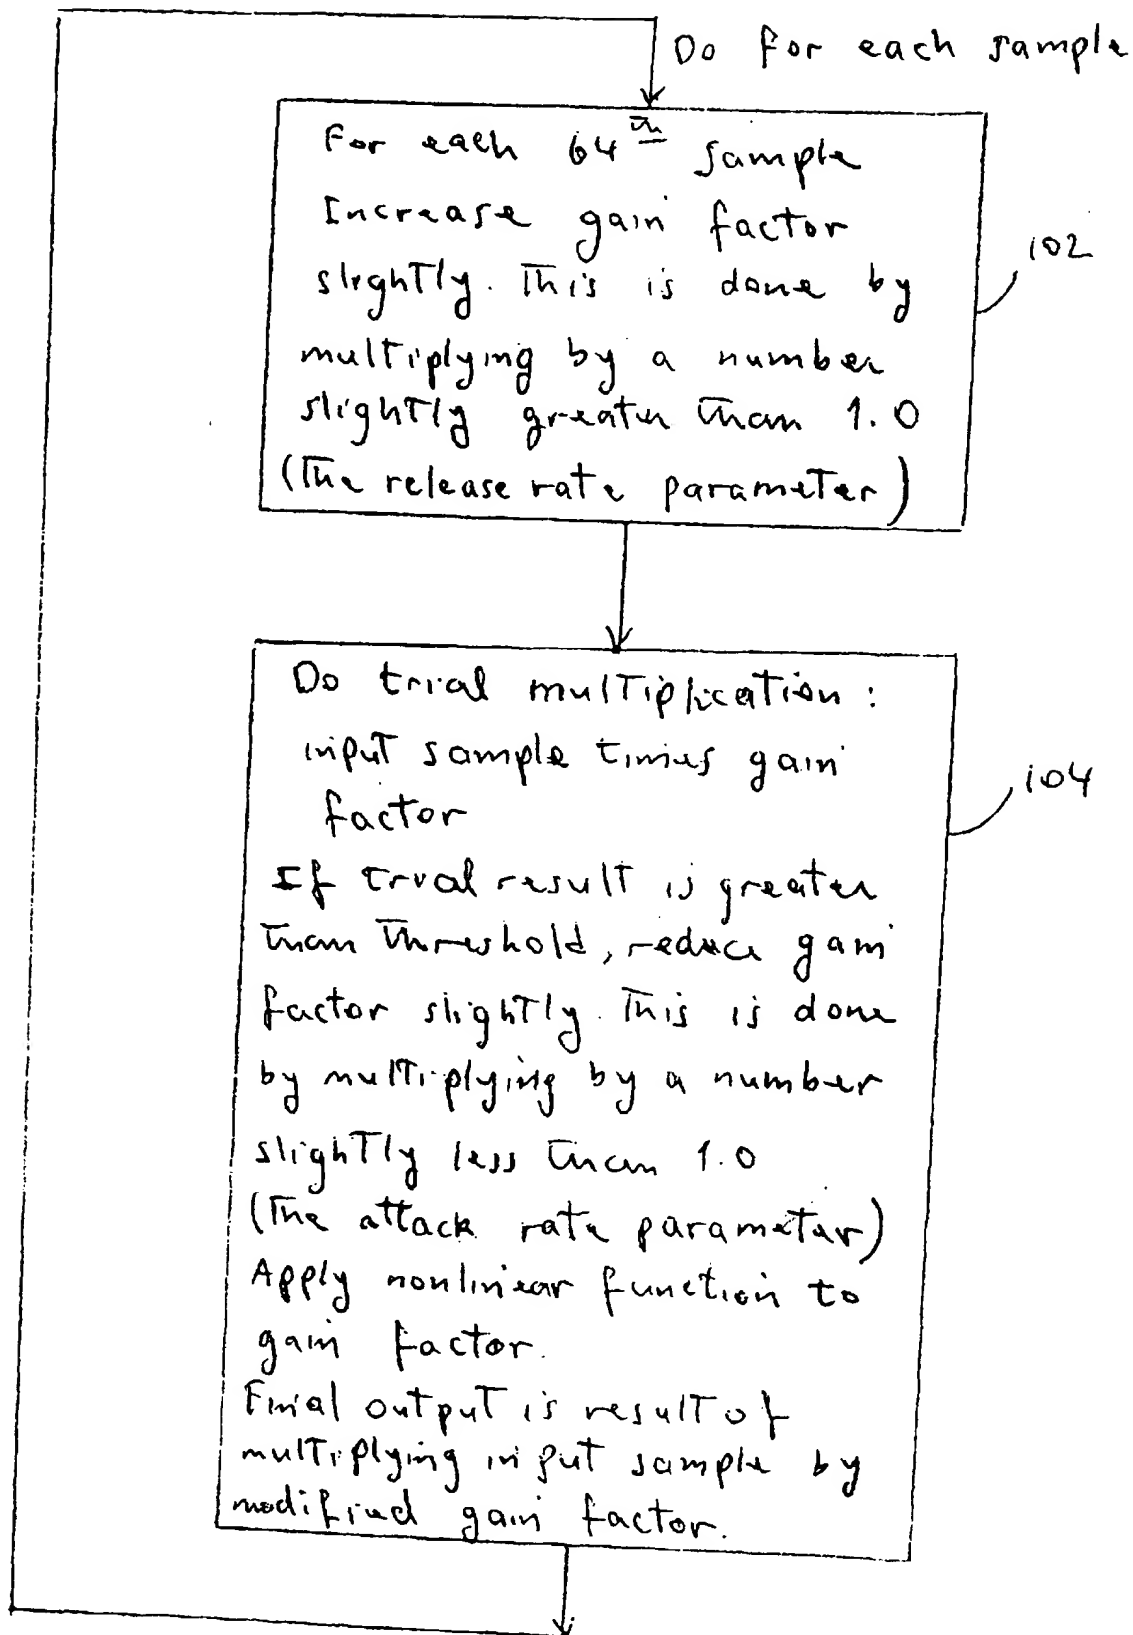 Do for each sample
For each 64th sample
Increase gain factor
slightly. This is done by
multiplying by a number
slightly greater than 1.0
(The release rate parameter)
102
Do trial multiplication :
input sample times gain
factor
If trial result is greater
than threshold, reduce gain
factor slightly. This is done
by multiplying by a number
slightly less than 1.0
(The attack rate parameter)
Apply nonlinear function to
gain factor.
Final output is result of
multiplying input sample by
modified gain factor.
104